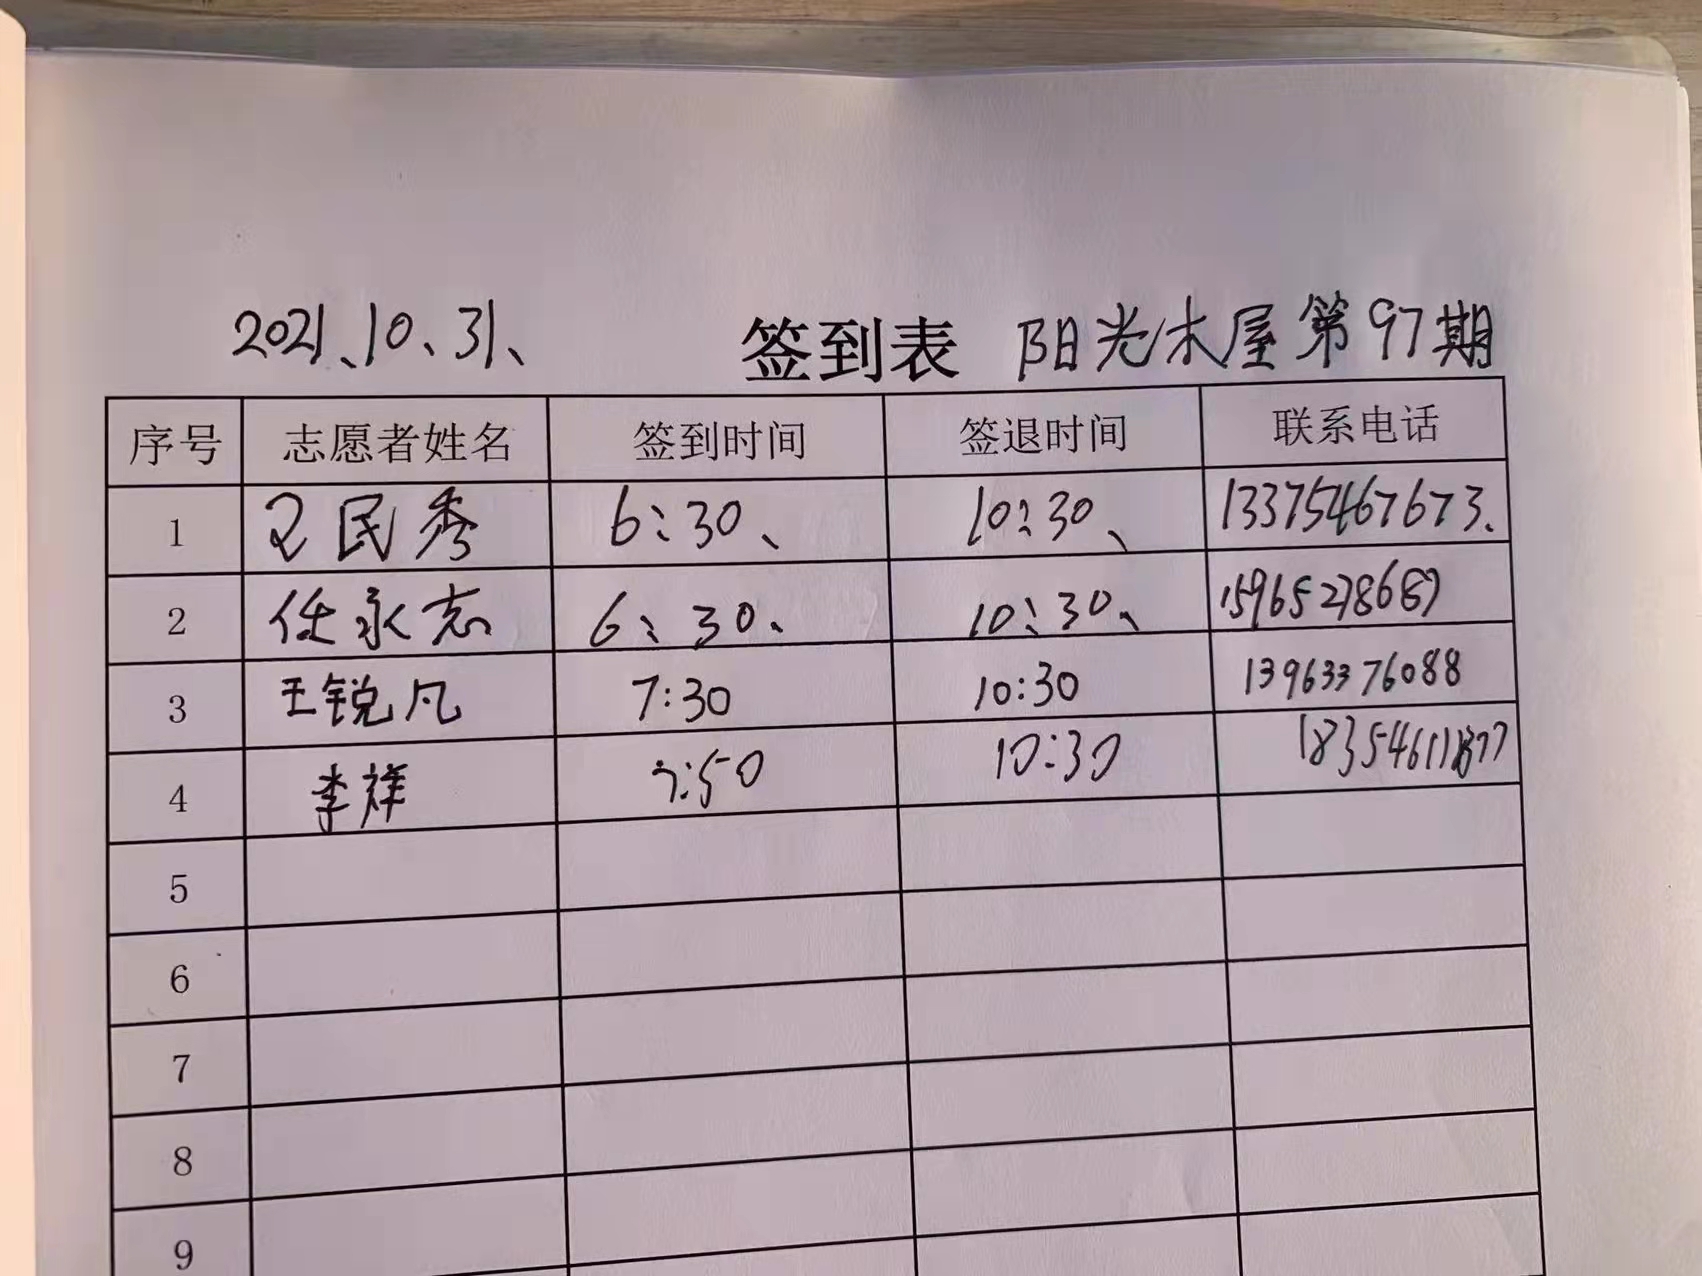 2021、10、31、 签到表 阳光木屋第97期
序号 志愿者姓名 签到时间 签退时间 联系电话
1 民秀 6:30、 10:30、 13375467673、
2 任永志 6:30、 10:30、
3 王锐凡 7:30 10:30 13963376088
4 李祥 7:50 10:30
5
6
7
8
9